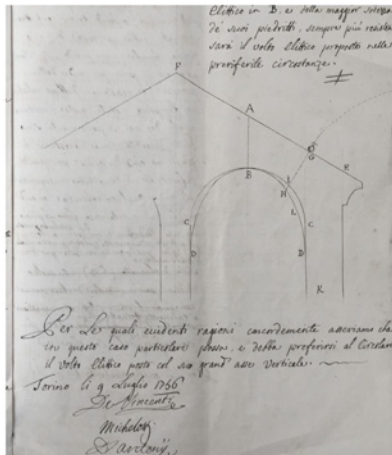 Elittico in B, e della maggior sodezza
de' suoi piedritti, sempre più resistente
sarà il volto Elittico proposto nelle
preriferite circostanze.
P
A
G
R
B
I
H
L
C
C
D
D
K
Per Le quali evidenti ragioni concordemente asseriamo che
in questo caso particolare possa, e debba preferirsi al Circolare
il volto Elittico posto col suo grand' asse verticale.
Torino li 9 Luglio 1756
De Vincenti
Michelotti
D'antonij